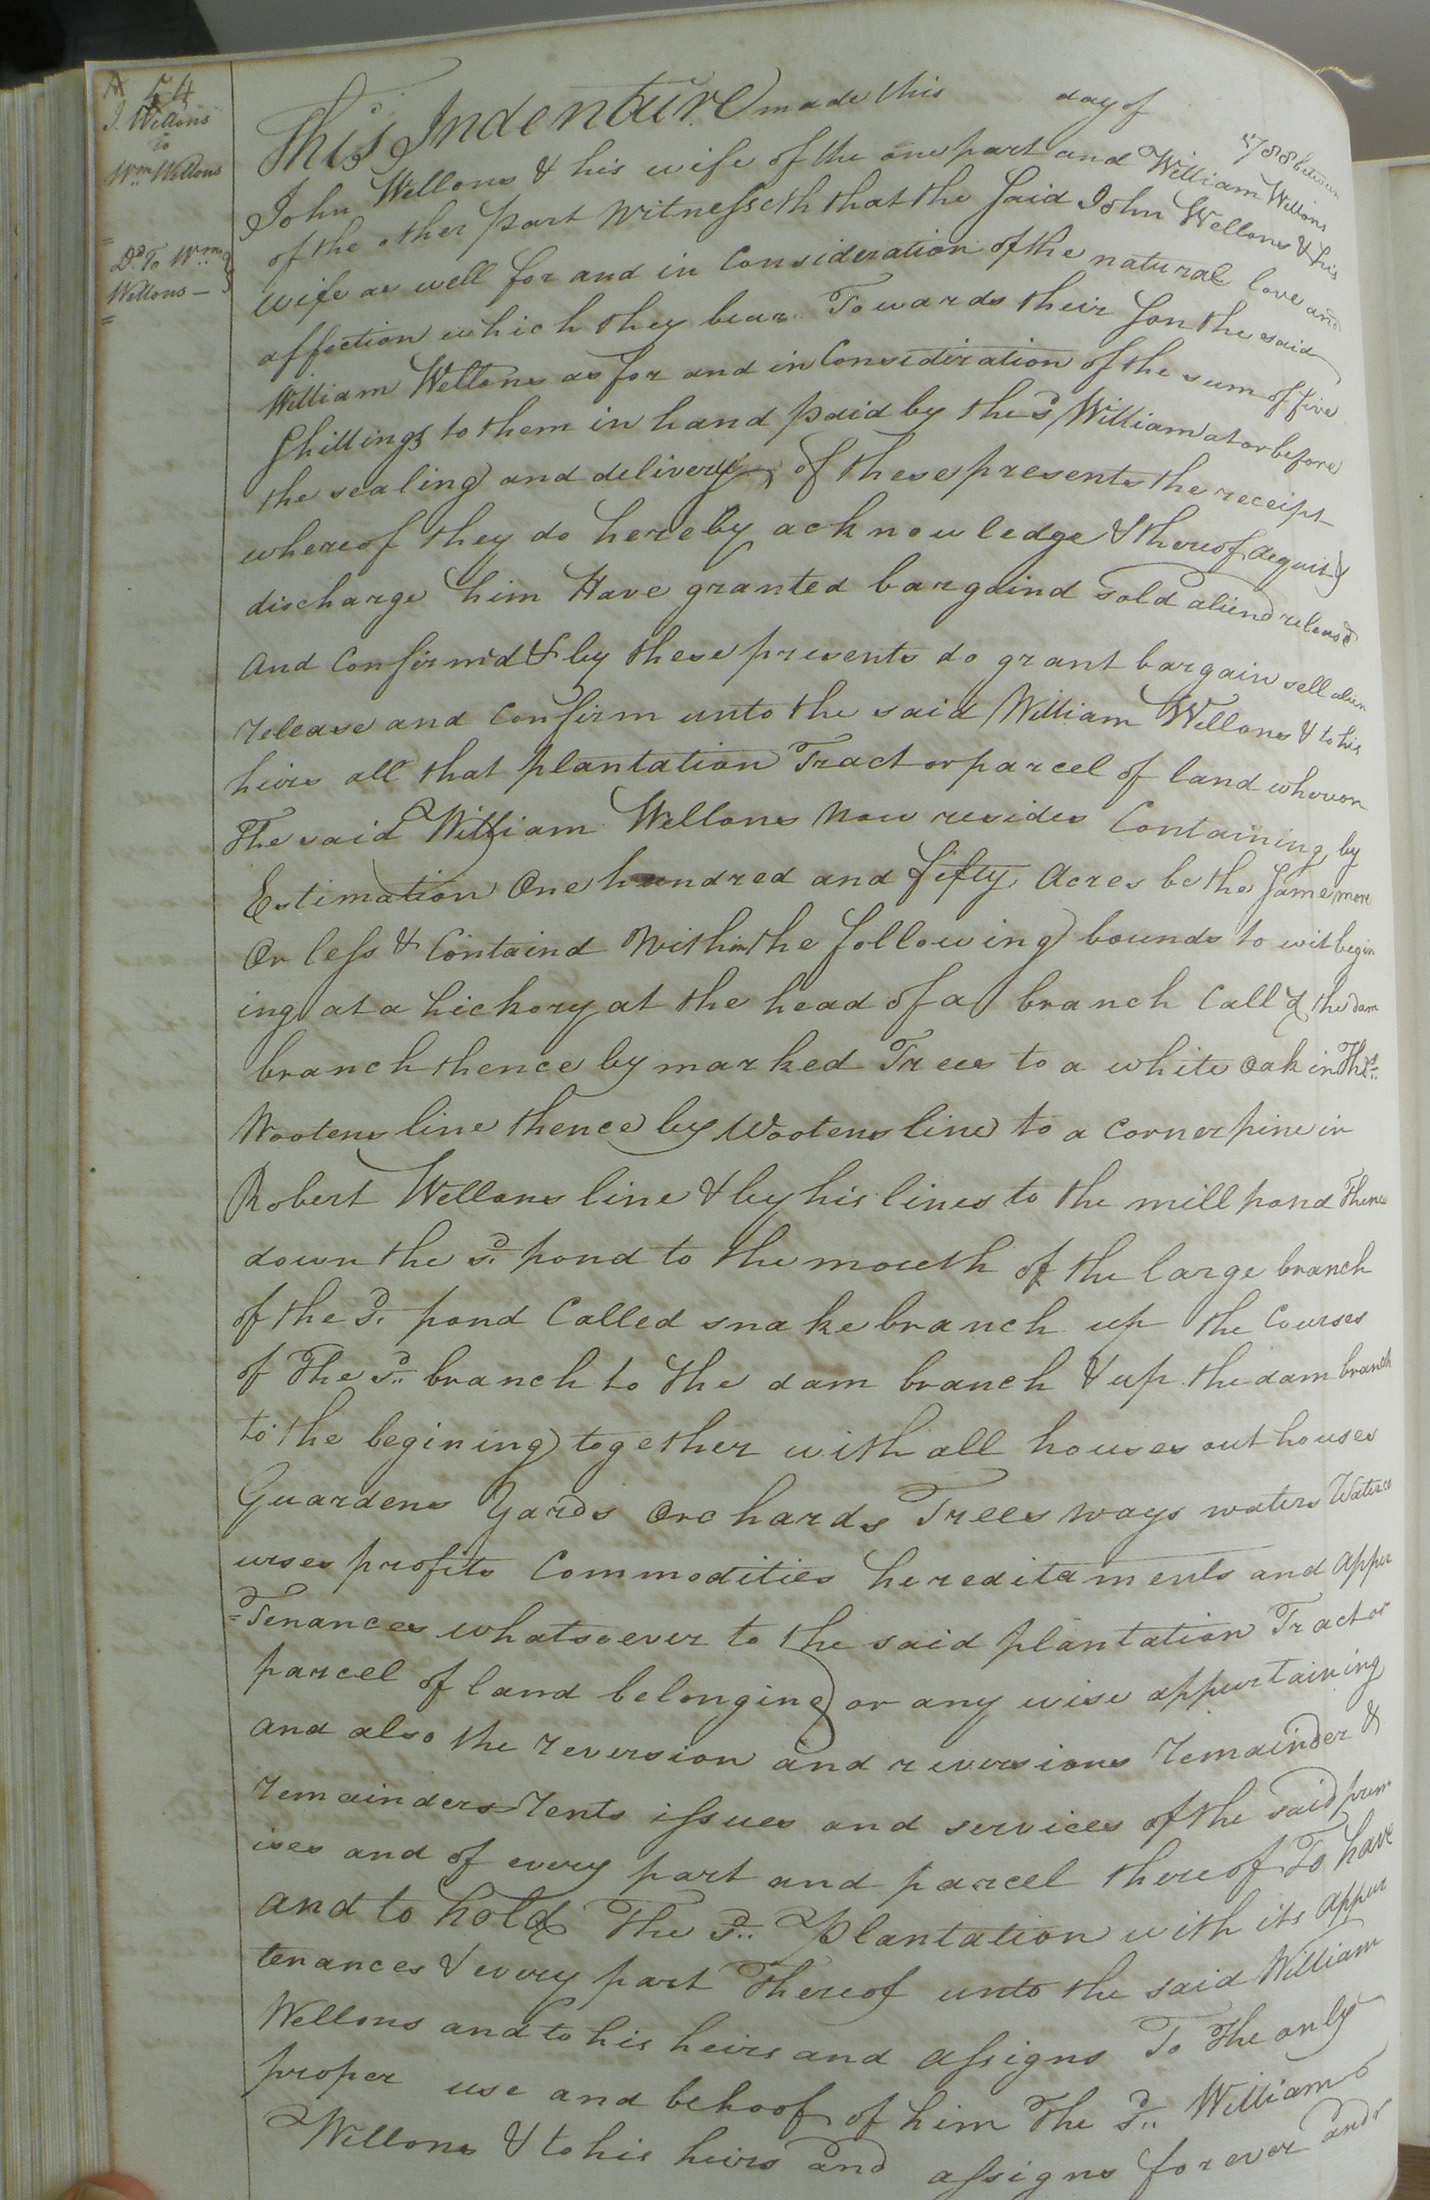 54
J. Wellons
to
Wm Wellons
Dd To Wm
Wellons
This Indenture made this day of 1788 between
John Wellons & his wife of the one part and William Wellons
of the other part Witnesseth that the said John Wellons & his
wife as well for and in Consideration of the natural love and
affection which they bear Towards their son the said
William Wellons as for and in Consideration of the sum of five
shillings to them in hand paid by the sd William at or before
the sealing and delivery of these presents the receipt
whereof they do hereby acknowledge & thereof acquit &
discharge him Have granted bargaind sold aliend releasd
And Confirmd & by these presents do grant bargain sell alien
release and Confirm unto the said William Wellons & to his
heirs all that plantation Tract or parcel of land whereon
The said William Wellons Now resides Containing by
Estimation One hundred and fifty Acres be the same more
Or less & Containd Within the following bounds to wit begin
ing at a hickory at the head of a branch Calld the dam
branch thence by marked Trees to a white Oak in Thos
Wootens line thence by Wootens line to a Corner pine in
Robert Wellons line & by his lines to the mill pond Thence
down the sd pond to the mouth of the large branch
of the sd pond Called snake branch up the Courses
of The sd branch to the dam branch & up the dam branch
to the begining together with all houses out houses
Guardens Yards Orchards Trees ways waters Waterco
urses profits Commodities hereditaments and appur
=Tenances whatsoever to the said plantation Tract or
parcel of land belonging or any wise appurtaining
and also the reversion and reversions remainder &
remainders rents issues and services of the said prem
ises and of every part and parcel thereof To have
and to hold The sd Plantation with its appur
tenances & every part Thereof unto the said William
Wellons and to his heirs and assigns To The only
proper use and behoof of him The sd William
Wellons & to his heirs and assigns forever and